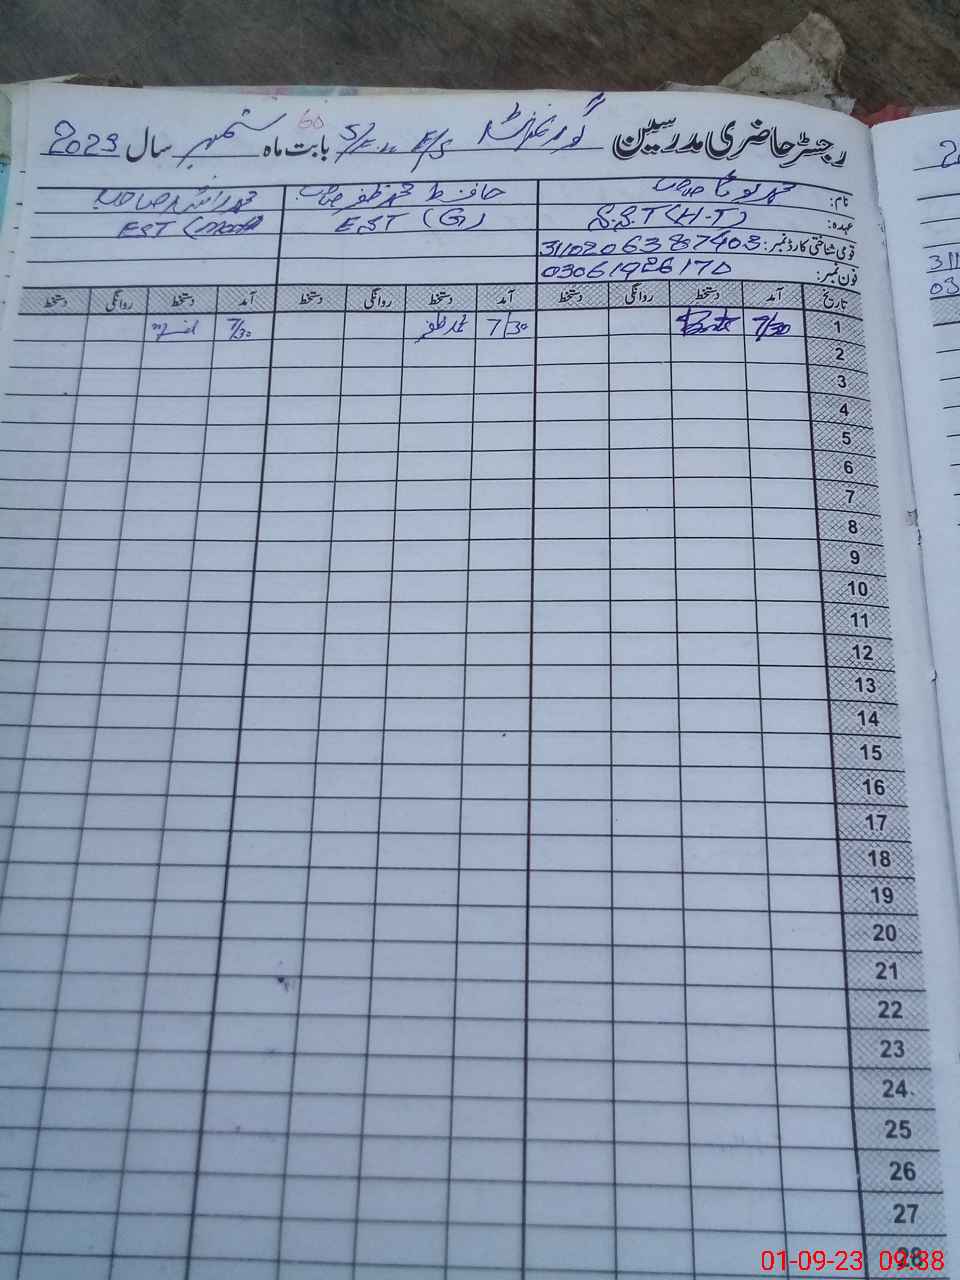 رجسٹر حاضری مدرسین گورنمنٹ E/S بابت ماہ ستمبر سال 2023
60
نام: محمد بوٹا صاحب حافظ محمد ظفر صاحب محمد راشد صاحب
عہدہ: S.S.T (H-T) EST (G) EST
قومی شناختی کارڈ نمبر: 3110206387403
فون نمبر: 03061926170
تاریخ آمد دستخط روانگی دستخط آمد دستخط روانگی دستخط آمد دستخط روانگی دستخط
1 7/30 7/30 محمد ظفر 7/30
2
3
4
5
6
7
8
9
10
11
12
13
14
15
16
17
18
19
20
21
22
23
24
25
26
27
28
01-09-23 09:38
311
03